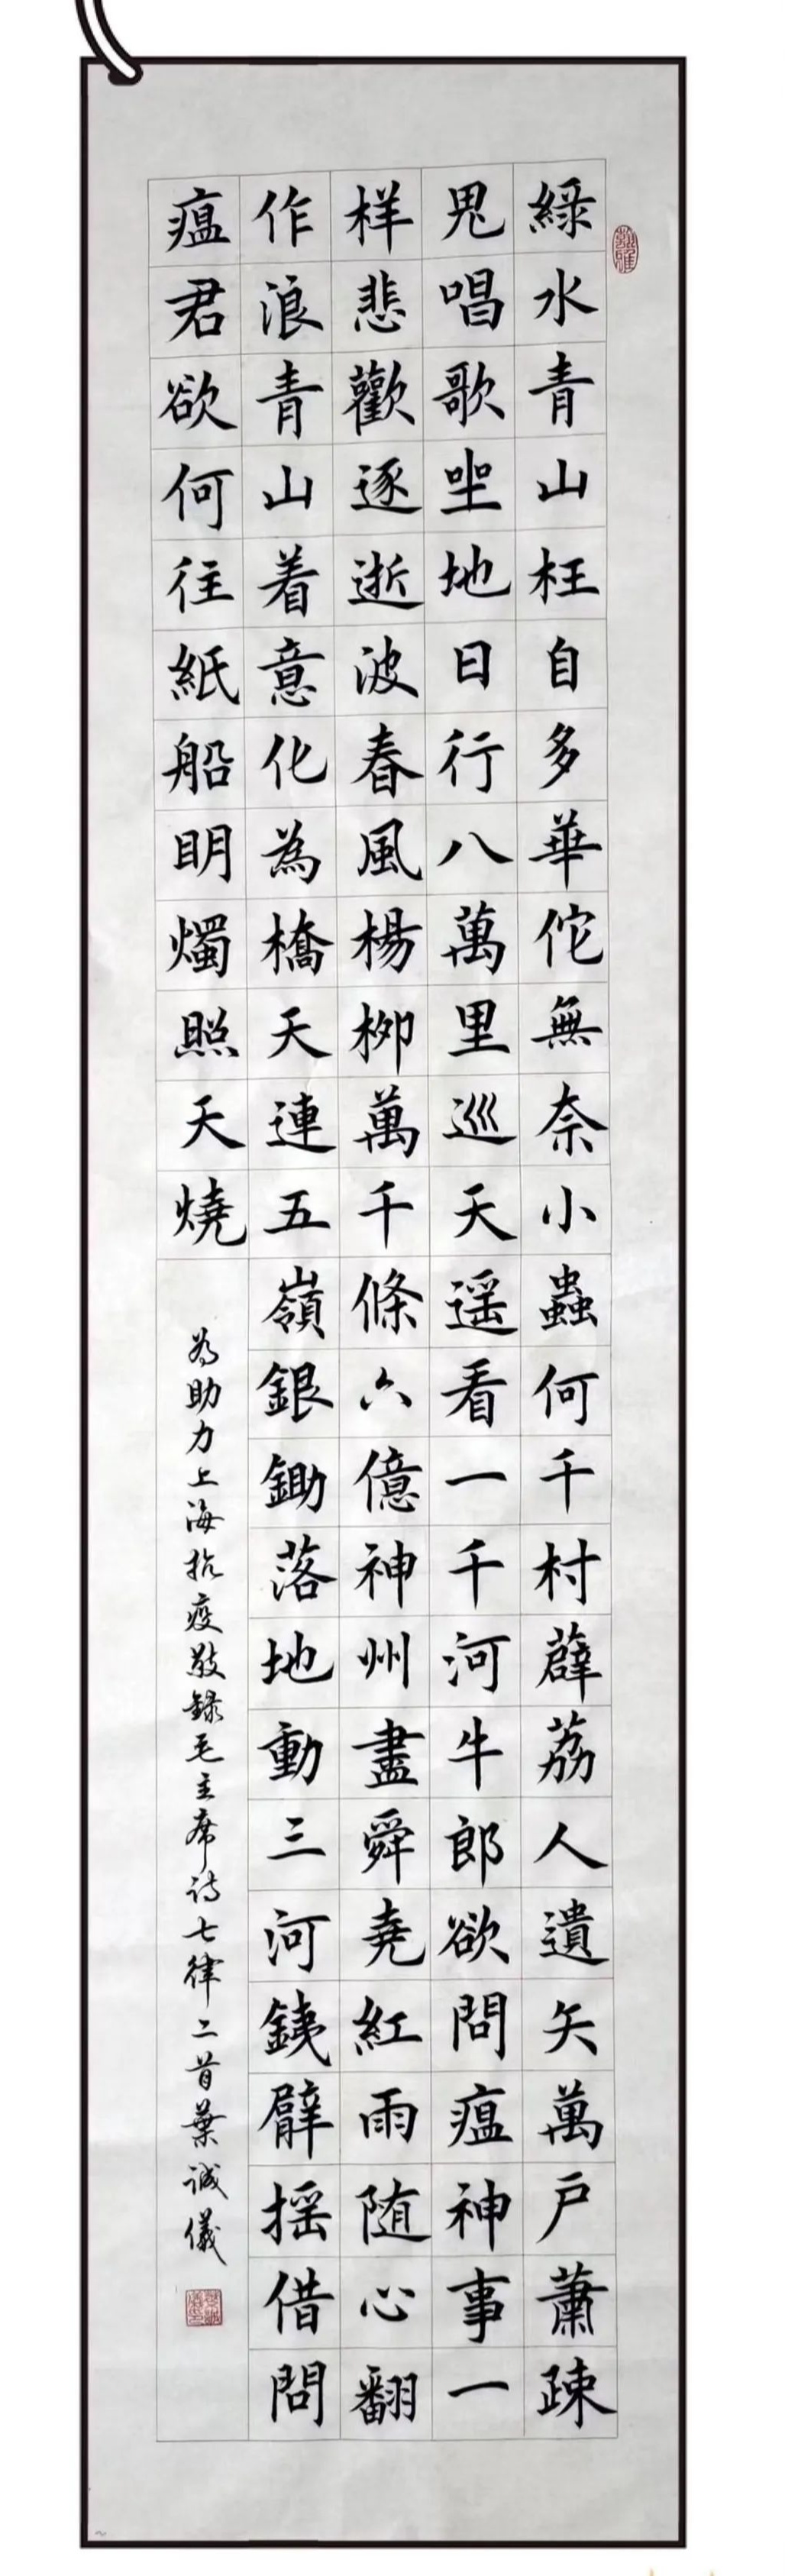 綠水青山枉自多華佗無奈小蟲何千村薜荔人遺矢萬戶蕭疎
鬼唱歌坐地日行八萬里巡天遥看一千河牛郎欲問瘟神事一
样悲歡逐逝波春風楊柳萬千條六億神州盡舜堯紅雨随心翻
作浪青山着意化為橋天連五嶺銀鋤落地動三河鐵臂揺借問
瘟君欲何往紙船明燭照天燒
为助力上海抗疫敬録毛主席诗七律二首葉诚儀